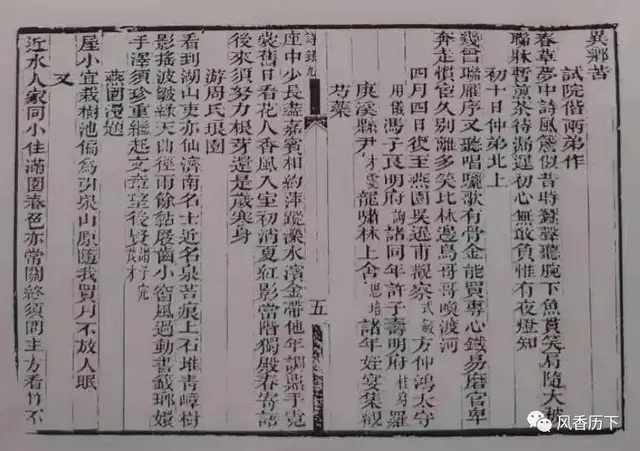 異鄉苦
試院偕兩弟作
春草夢中詩風簷似昔時蠶聲聽腕下魚貫笑肩隨大被
聯牀暫煎茶待漏遲初心無敢負惟有夜燈知
初十日仲弟北上
幾曾聯雁序又聽唱驪歌有骨金能買專心鐵易磨官卑
奔走慣宦久別離多笑比林邊鳥哥哥喚渡河
四月四日復至燕園吳退市觀察式敏方仲鴻太守
用儀馮子良明府詢諸同年許子壽明府桂身羅
庚溪縣尹才雯龍嘯林上舍思培諸年姪宴集觀
芍藥
詩錄九
五
座中少長盡嘉賓相約萍蹤濼水濱金帶他年
蒙舊日看花人香風入室初消夏紅影當階獨殿春寄語
後來須努力根芽還是歲寒身
游周氏琅園
看到湖山吏亦仙濟南名士近名泉苔痕上石堆青嶂樹
影搖波皺綠天曲徑雨餘黏屐齒小窗風過動書籤瑯嬛
手澤須珍重繼起文章望後賢謂子完茂才
燕園漫題
屋小宜栽樹池偏為引泉山原隨我買月不放人眠
又
近水人家同小住滿園春色亦常關終須問主方看竹不
风香历下